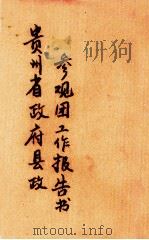 贵州省政府县政
参观团工作报告书
mtoou.info